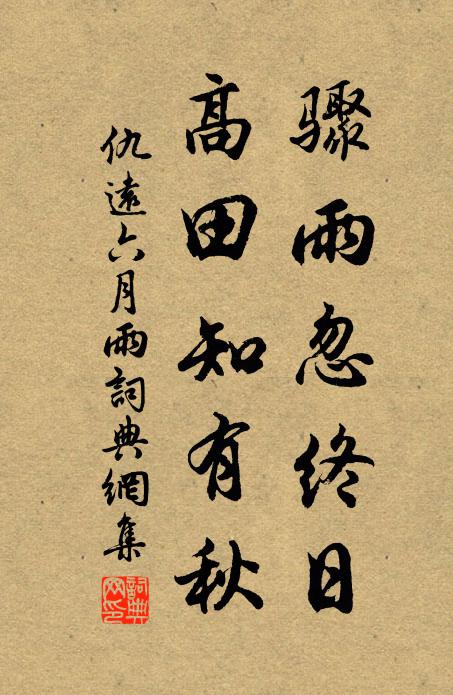 驟雨忽終日
高田知有秋
仇遠六月雨詞典網集
詞典網印